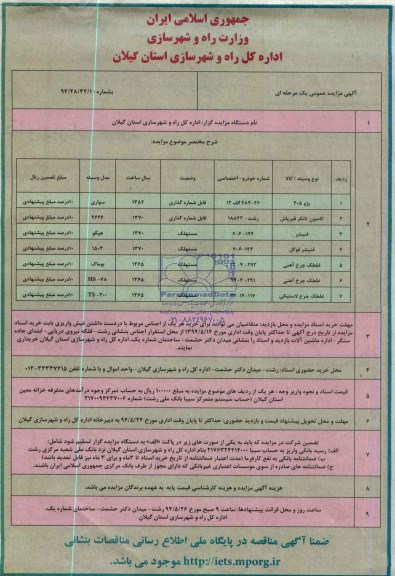 جمهوری اسلامی ایران
وزارت راه و شهرسازی
اداره کل راه و شهرسازی استان گیلان
آگهی مزایده عمومی یک مرحله ای
بشماره ۹۴/۲۸/۳۴/۱
۱ نام دستگاه مزایده گزار: اداره کل راه و شهرسازی استان گیلان
۲ شرح مختصر موضوع مزایده:
ردیف نوع وسیله / کالا شماره خودرو - اختصاصی وضعیت سال ساخت مدل وسیله مبلغ تضمین ریال
۱ پژو ۴۰۵ قابل شماره گذاری ۱۳۸۲ سواری ۱۰درصد مبلغ پیشنهادی
۲ کامیون تانکر قیرپاش رشت - ۱۸۸۲۳ قابل شماره گذاری ۱۳۷۰ ۲۶۲۴ ۱۰درصد مبلغ پیشنهادی
۳ فنیشر مستهلک ۱۳۷۰ ۱۰درصد مبلغ پیشنهادی
۴ فنیشر فوگل مستهلک ۱۳۷۰ ۱۵۰۳ ۱۰درصد مبلغ پیشنهادی
۵ غلطک چرخ آهنی مستهلک ۱۳۶۵ بوماک ۱۰درصد مبلغ پیشنهادی
۶ غلطک چرخ آهنی مستهلک ۱۳۶۵ ۱۰درصد مبلغ پیشنهادی
۷ غلطک چرخ لاستیکی مستهلک ۱۳۶۵ TS-۲۰۰ ۱۰درصد مبلغ پیشنهادی
۰۲۱-۸۸۳۴۹۶۷۰-۵
۳ مهلت خرید اسناد مزایده و محل بازدید: متقاضیان می توانند برای خرید هر یک از اجناس مربوط با دردست داشتن فیش واریزی بابت خرید اسناد
مزایده از تاریخ درج آگهی تا حداکثر پایان وقت اداری مورخ ۱۳۹۴/۵/۱۴ از محل استقرار اجناس بنشانی رشت- فلکه نیروی دریایی- ابتدای جاده
سنگر - اداره ماشین آلات بازدید و اسناد را بنشانی میدان دکتر حشمت- ساختمان شماره یک، اداره کل راه و شهرسازی استان گیلان خریداری
نمایند.
۴ محل خرید حضوری اسناد: رشت- میدان دکتر حشمت- اداره کل راه و شهرسازی استان گیلان- واحد اموال و یا شماره تلفن ۳۳۳۳۷۴۱۵-۰۱۳
۵ قیمت اسناد و نحوه واریز وجه: هر یک از ردیف های موضوع مزایده به مبلغ ۱۰۰۰۰۰ ریال به حساب تمرکز وجوه درآمدهای متفرقه خزانه معین
استان گیلان (حساب سیستم متمرکز سیبا بانک ملی رشت) شماره ۲۱۷۰۰۹۴۴۳۷۰۰۶
۶ مهلت و محل تحویل پیشنهاد قیمت و بازدید حضوری: حداکثر تا پایان وقت اداری مورخ ۹۴/۵/۲۴ به دبیرخانه اداره کل راه و شهرسازی گیلان
۷ تضمین شرکت در مزایده که باید به یکی از صورت های زیر در پاکت «الف» به دستگاه مزایده گزار تسلیم شود شامل:
الف) رسید بانکی واریز به حساب سیبا ۲۱۷۶۳۲۴۴۱۴۰۰۰ بنام اداره کل راه و شهرسازی استان گیلان نزد بانک ملی شعبه مرکزی رشت
ب) ضمانتنامه بانکی به نفع کارفرما (مدت اعتبار ضمانتنامه از تاریخ خرید اسناد تا ۳ماه و برای ۳ ماه نیز قابل تمدید باشد)
ج) ضمانتنامه های صادره از سوی موسسات اعتباری غیربانکی که دارای مجوز از طرف بانک مرکزی جمهوری اسلامی ایران باشند.
۸ هزینه آگهی مزایده و هزینه کارشناسی قیمت پایه به عهده برندگان مزایده می باشد.
۹ ساعت روز و محل قرائت پیشنهادها: ساعت ۹ صبح مورخ ۹۴/۵/۲۶ رشت- میدان دکتر حشمت- ساختمان شماره یک،
اداره کل راه و شهرسازی استان گیلان
ضمنا آگهی مناقصه در پایگاه ملی اطلاع رسانی مناقصات بنشانی
http://iets.mporg.ir موجود می باشد.